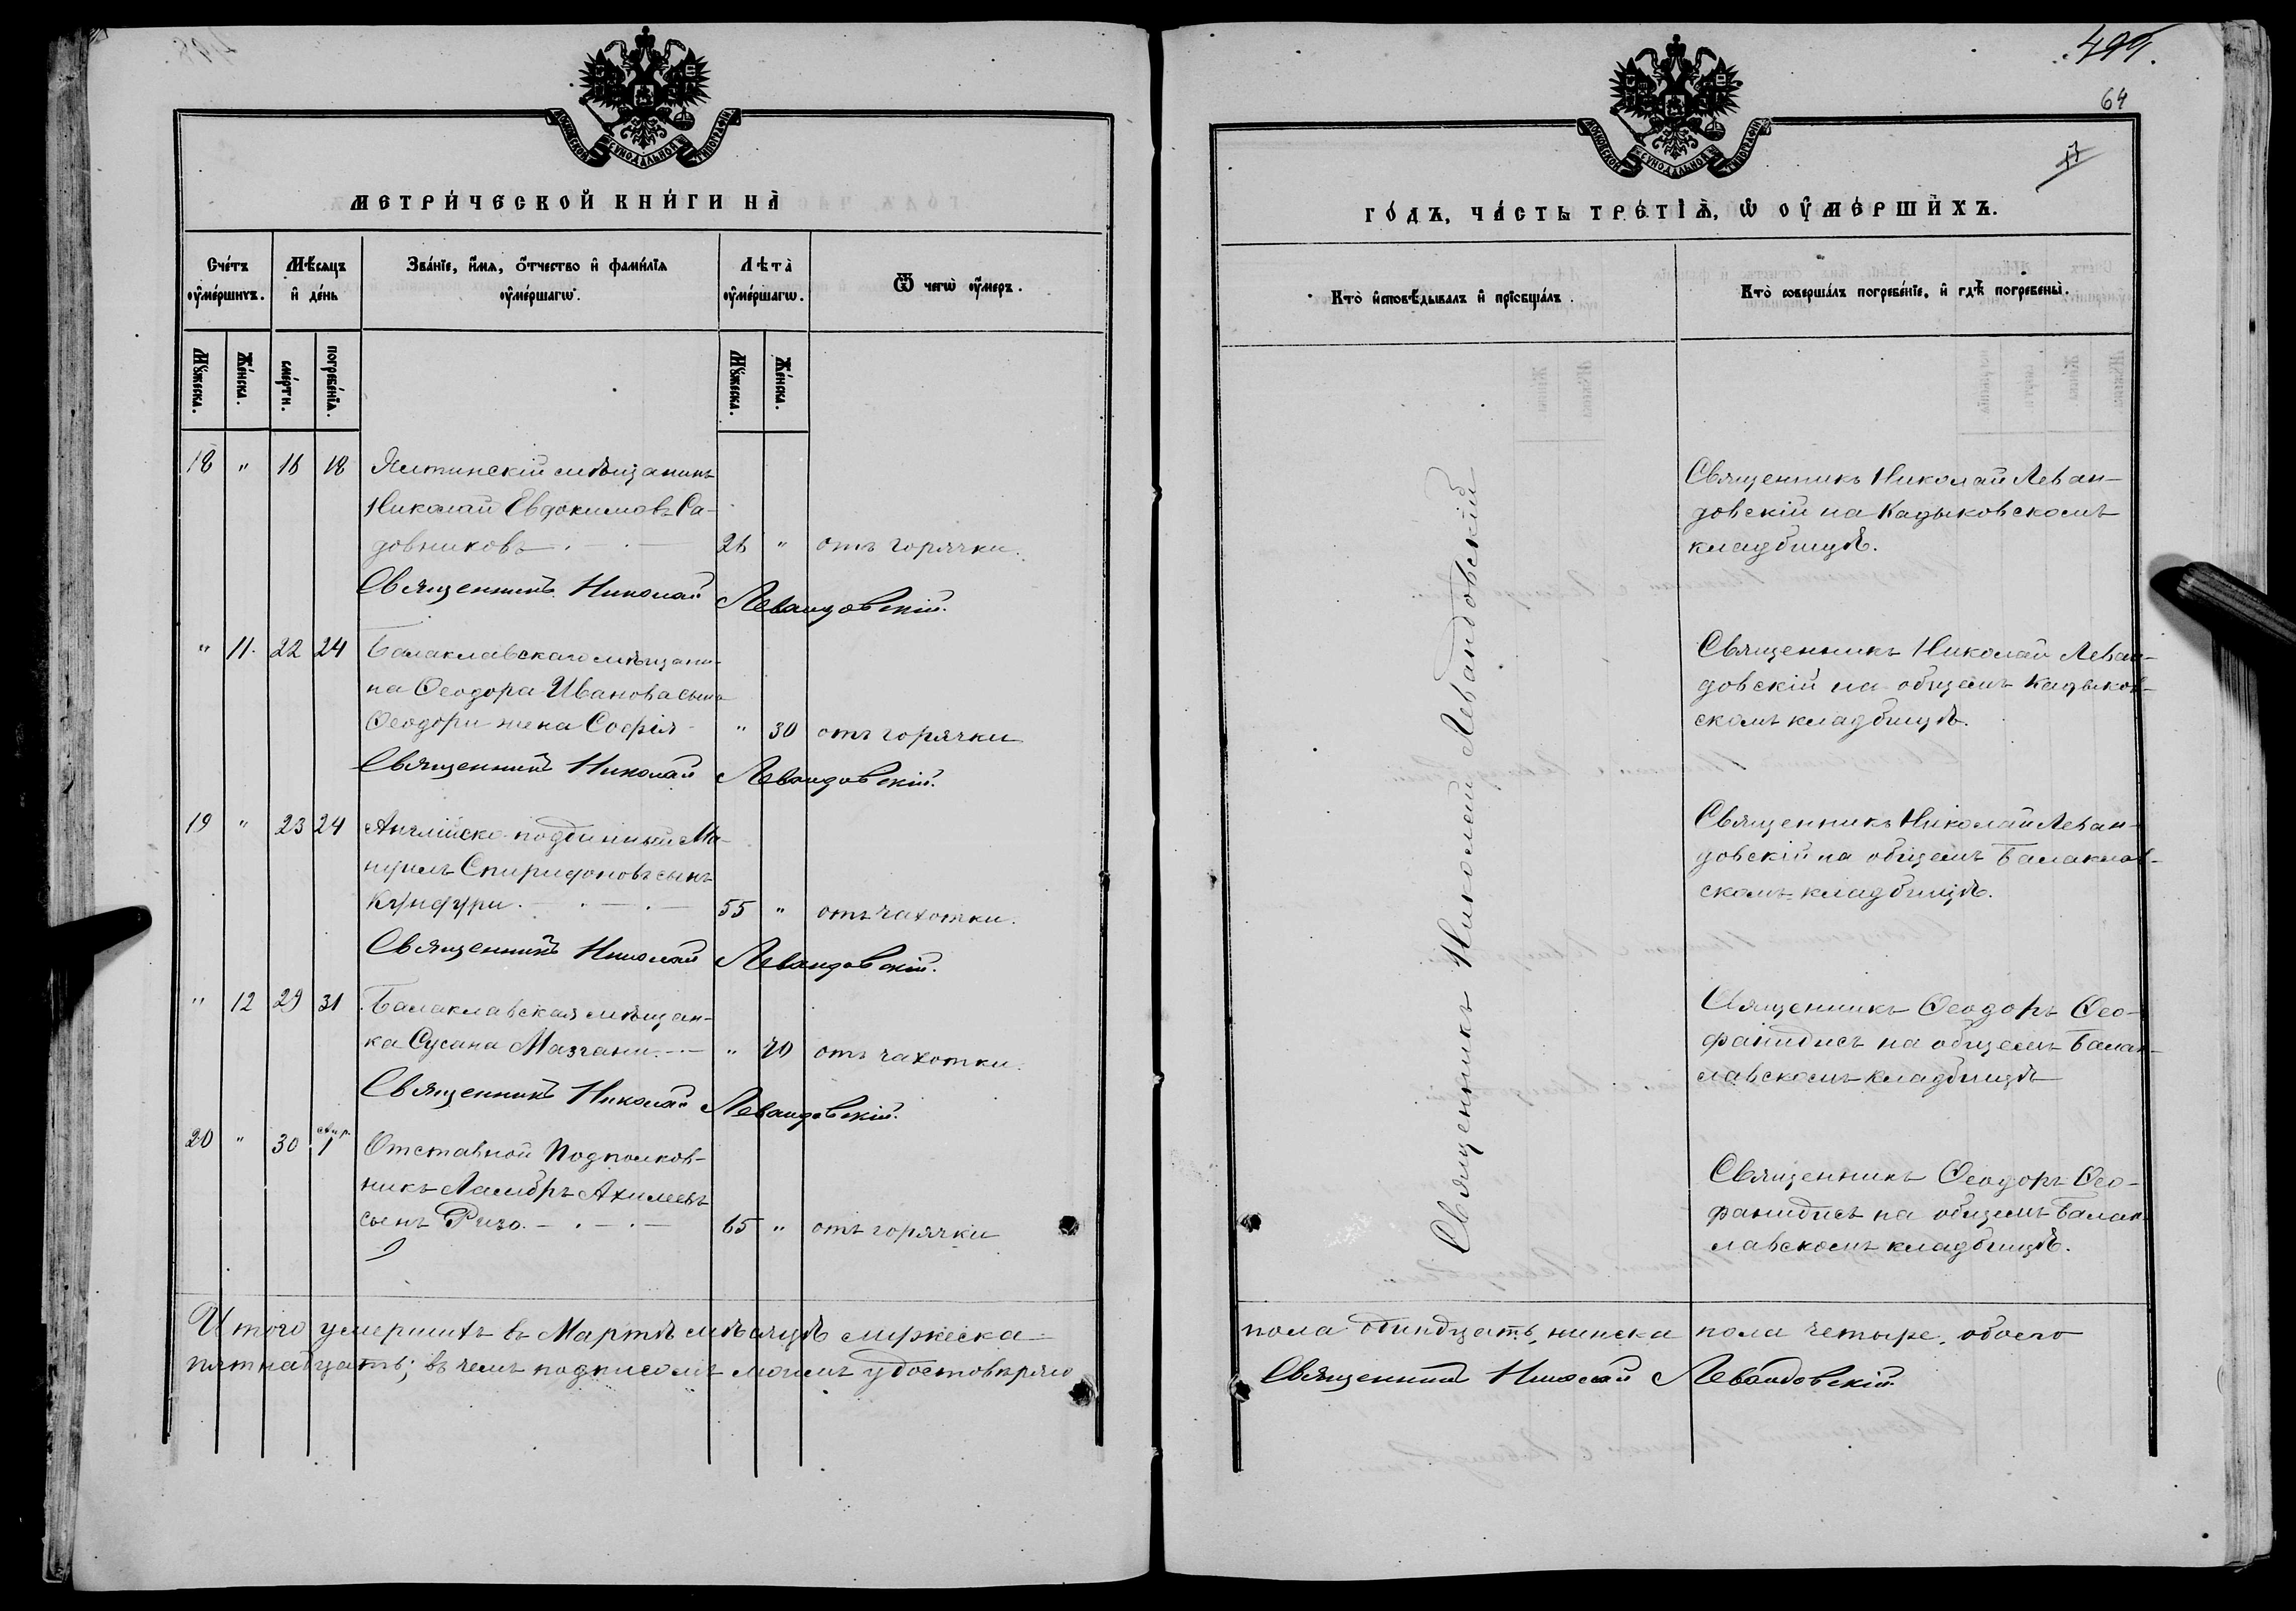 499.
64
17
МОСКОВСКОЙ СУНОДАЛЬНОЙ ТИПОГРАФІИ
МЕТРИ́ЧЕСКОЙ КНИ́ГИ НА̀
Сче́тъ ᲂу҆ме́ршихъ.
Мѣ́сяцъ и҆ де́нь
Зва́нїе, и҆́мѧ, ѻ҆́тчество и҆ фами́лїѧ ᲂу҆ме́ршагѡ.
Лѣта̀ ᲂу҆ме́ршагѡ.
Ѿ чегѡ̀ ᲂу҆́меръ.
Мꙋ́жеска.
Же́нска.
сме́рти.
погребе́нїѧ.
Мꙋ́жеска.
Же́нска.
18 " 16 18 Ялтинскій мѣщанинъ
Николай Евдокимовъ Са-
довниковъ 26 " отъ горячки.
Священникъ Николай Левандовскій.
" 11. 22 24 Балаклавскаго мѣщани-
на Ѳеодора Иванова сына
Ѳеодори жена Софія " 30 отъ горячки
Священникъ Николай Левандовскій.
19 " 23 24 Англійско-подданный Ма-
нуилъ Спиридоновъ сынъ
Кундури. 55 " отъ чахотки.
Священникъ Николай Левандовскій.
" 12 29 31 Балаклавская мѣщан-
ка Сусана Мазгани. " 70 отъ чахотки.
Священникъ Николай Левандовскій.
20 " 30 1 Отставной Подполков-
никъ Ламбръ Ахилеевъ
сынъ Ризо. 65 " отъ горячки
Итого умершихъ въ Мартѣ мѣсяцѣ мужеска
пятнадцать; въ чемъ подписомъ моимъ удостовѣряю
МОСКОВСКОЙ СУНОДАЛЬНОЙ ТИПОГРАФІИ
ГО́ДЪ, ЧА́СТЬ ТРЕ́ТЇѦ, Ѡ҆ ОУ҆МЕ́РШИХЪ.
Кто̀ и҆сповѣ́дывалъ и҆ прїѡбща́лъ.
Кто̀ соверша́лъ погребе́нїе, и҆ гдѣ̀ погребены̀.
Священникъ Николай Левандовскій
Священникъ Николай Леван-
довскій на Кадыковскомъ
кладбищѣ.
Священникъ Николай Леван-
довскій на общемъ Кадыков-
скомъ кладбищѣ.
Священникъ Николай Леван-
довскій на общемъ Балаклав-
скомъ кладбищѣ.
Священникъ Ѳеодоръ Ѳео-
фанидисъ на общемъ Балак-
лавскомъ кладбищѣ
Священникъ Ѳеодоръ Ѳео-
фанидисъ на общемъ Балак-
лавскомъ кладбищѣ.
пола одиндцать, женска пола четыре, обоего
Священникъ Николай Левандовскій